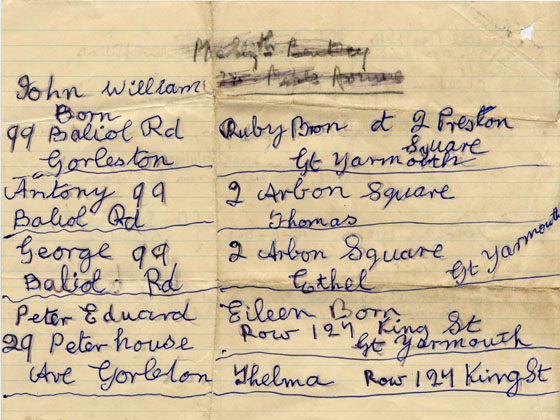 John William
Born
99 Baliol Rd
Gorleston
Antony 99
Baliol Rd
George 99
Baliol Rd
Peter Eduard
29 Peterhouse
Ave Gorleton
Ruby Bron at 2 Preston
Square
Gt Yarmouth
2 Arbon Square
Thomas
2 Arbon Square
Ethel Gt Yarmouth
Eileen Born
Row 127 King St
Gt Yarmouth
Thelma Row 127 King St